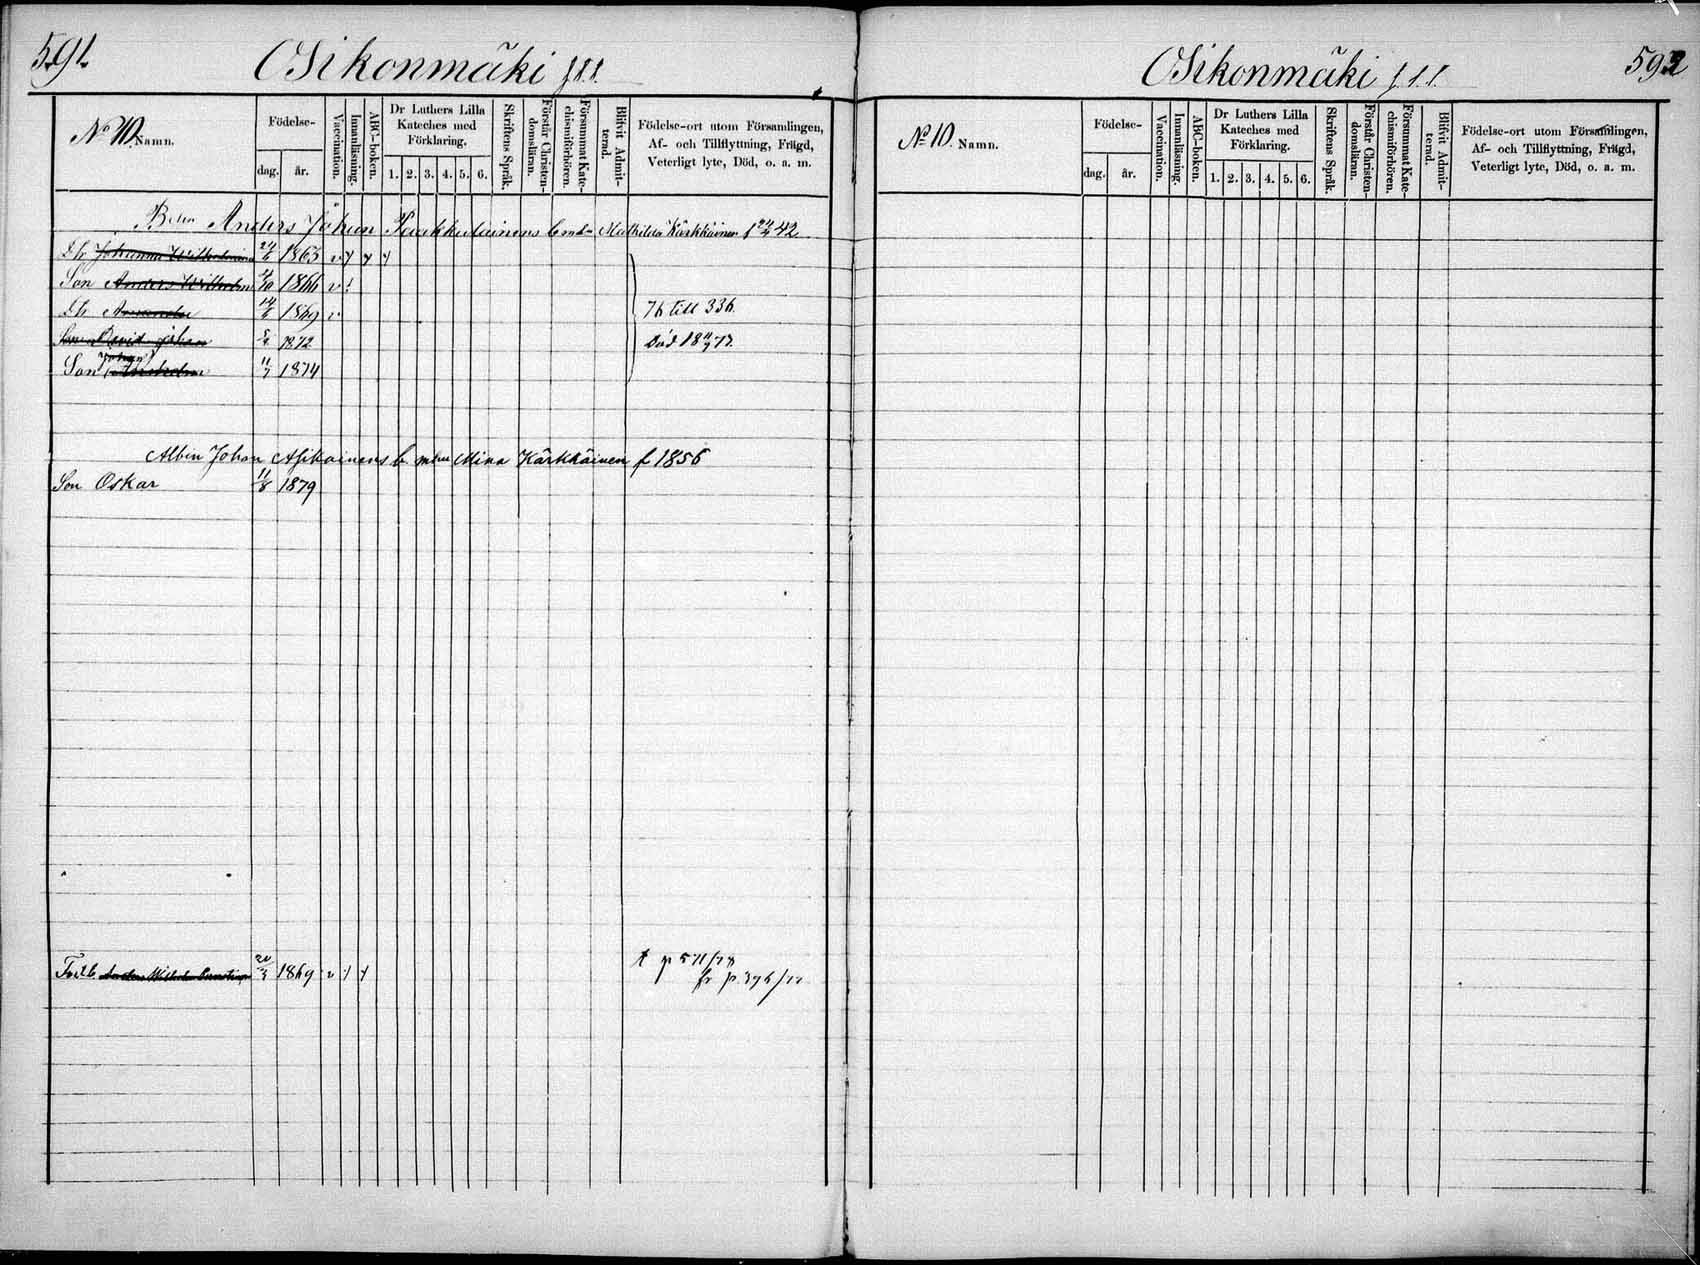 591.
Osikonmäki III.
No 10. Namn.
Födelse-
dag. år.
Vaccination.
Innanläsning.
ABC-boken.
Dr Luthers Lilla
Kateches med
Förklaring.
1. 2. 3. 4. 5. 6.
Skriftens Språk.
Förstår Christen-
domslärán.
Försummat Kate-
chismiförhören.
Blifvit Admit-
terad.
Födelse-ort utom Församlingen,
Af- och Tillflyttning, Frägd,
Veterligt lyte, Död, o. a. m.
Anders Johan Paakkulainens b md Mathilda Kärkkäinen f 42
Dr Johanna Wilhelmina 1863 v
Son Anders Wilhelm 1866 v
Dr Amanda 1869 v 76 till 336
Son David Johan 1872 Död
Son Johan 11/7 1874
Albin Johan Asikainens b. m Mina Kärkkäinen f 1856
Son Oskar 11/8 1879
Anders Wilhelm 1869 v
p 571/78
fr p. 376/77
592
Osikonmäki III.
No 10. Namn.
Födelse-
dag. år.
Vaccination.
Innanläsning.
ABC-boken.
Dr Luthers Lilla
Kateches med
Förklaring.
1. 2. 3. 4. 5. 6.
Skriftens Språk.
Förstår Christen-
domslärán.
Försummat Kate-
chismiförhören.
Blifvit Admit-
terad.
Födelse-ort utom Församlingen,
Af- och Tillflyttning, Frägd,
Veterligt lyte, Död, o. a. m.